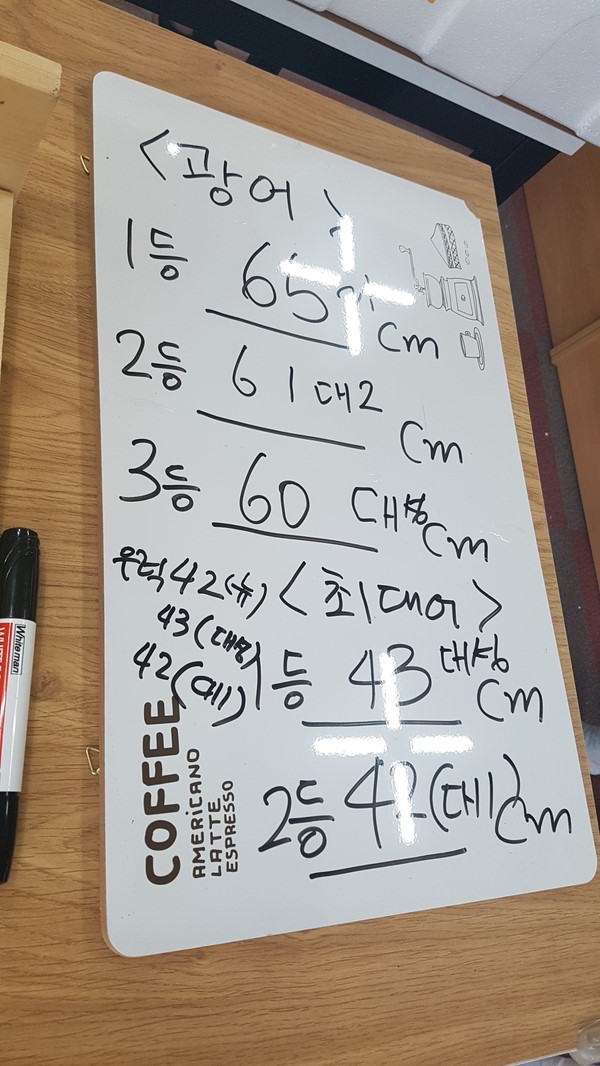 <광어>
1등 65 cm
2등 61 대2 cm
3등 60 대성 cm
우럭 42(뉴) <최대어>
43(대성)
42(에이) 1등 43 대성 cm
2등 42(대1) cm
COFFEE
AMERICANO
LATTE
ESPRESSO
Whiteman